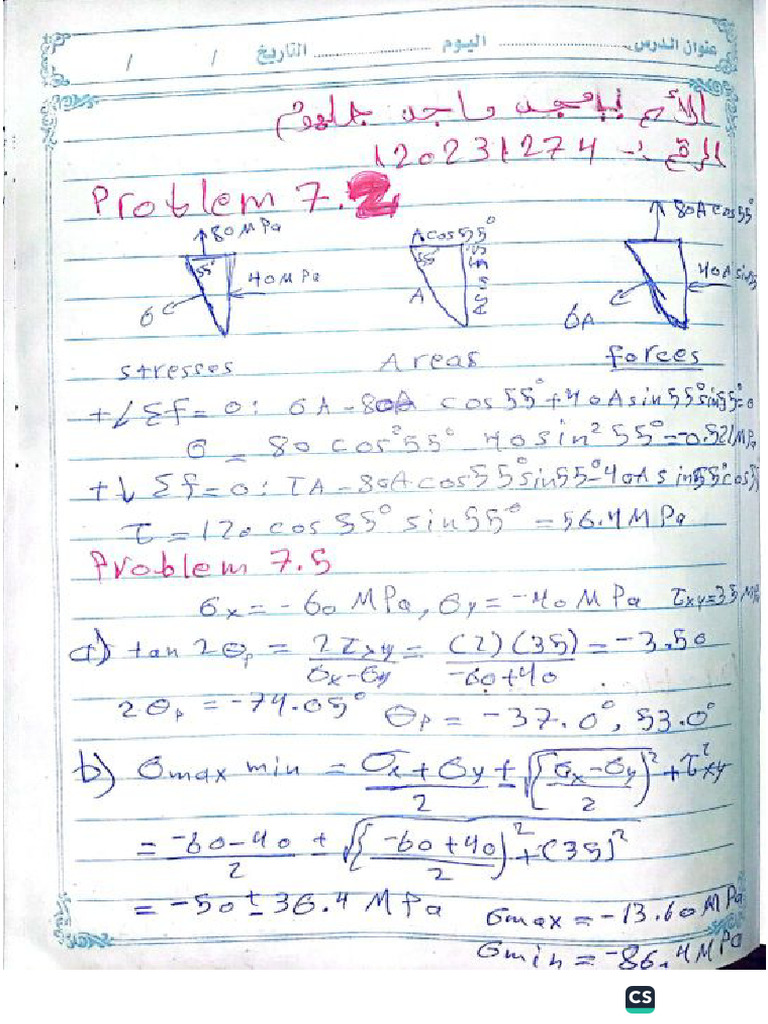 عنوان الدرس ........................ اليوم ........................ التاريخ / /
ماجد
الرقم :- 120231274
Problem 7.2
80MPa
55°
40MPa
σ
Acos55°
55°
A
80Acos55°
40A sin55
σA
stresses Areas forces
+↙Σf=0: σA-80A cos55°+40Asin55°sin55°=0
σ = 80 cos²55° 40sin²55°=-0.521MPa
+↓Σf=0: τA-80Acos55°sin55°-40Asin55°cos55
τ=120cos55° sin55° = 56.4MPa
Problem 7.5
σx=-60MPa, σy=-40MPa τxy=35 MPa
a) tan 2θp = 2τxy / σx-σy = (2)(35) / -60+40 = -3.50
2θp = -74.05° θp = -37.0°, 53.0°
b) σmax min = σx+σy / 2 ± √(σx-σy / 2)²+τ²xy
= -60-40 / 2 ± √(-60+40 / 2)²+(35)²
= -50±36.4 MPa σmax=-13.60MPa
σmin=-86.4MPa
CS